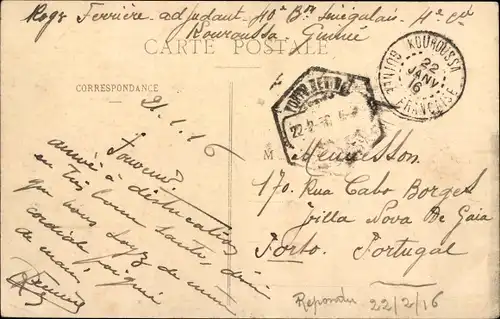 Roge Ferrière adjudant 40e Bon Sénégalais 4e Cie
Kouroussa Guinée
CARTE POSTALE
KOUROUSSA
22
JANV
16
GUINÉE FRANÇAISE
CORRESPONDANCE
21.1.16
M Mennesson
170 Rua Cabo Borges
Villa Nova De Gaia
Porto. Portugal
arrivé à destination
en très bonne santé,
que vous soyez de même
cordiale poignée
de main,
Ferrière
22/2/16